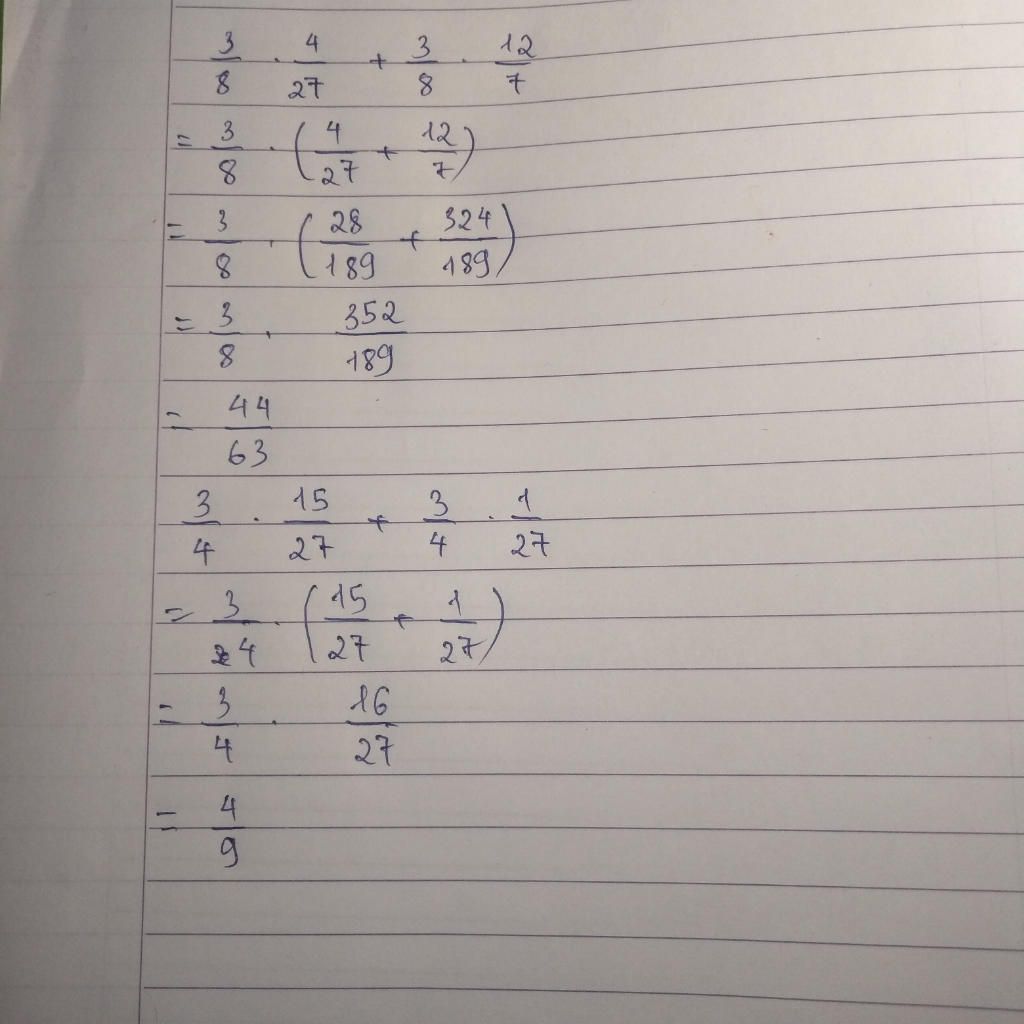 3/8 · 4/27 + 3/8 · 12/7
= 3/8 · (4/27 + 12/7)
= 3/8 · (28/189 + 324/189)
= 3/8 · 352/189
= 44/63
3/4 · 15/27 + 3/4 · 1/27
= 3/4 · (15/27 + 1/27)
= 3/4 · 16/27
= 4/9